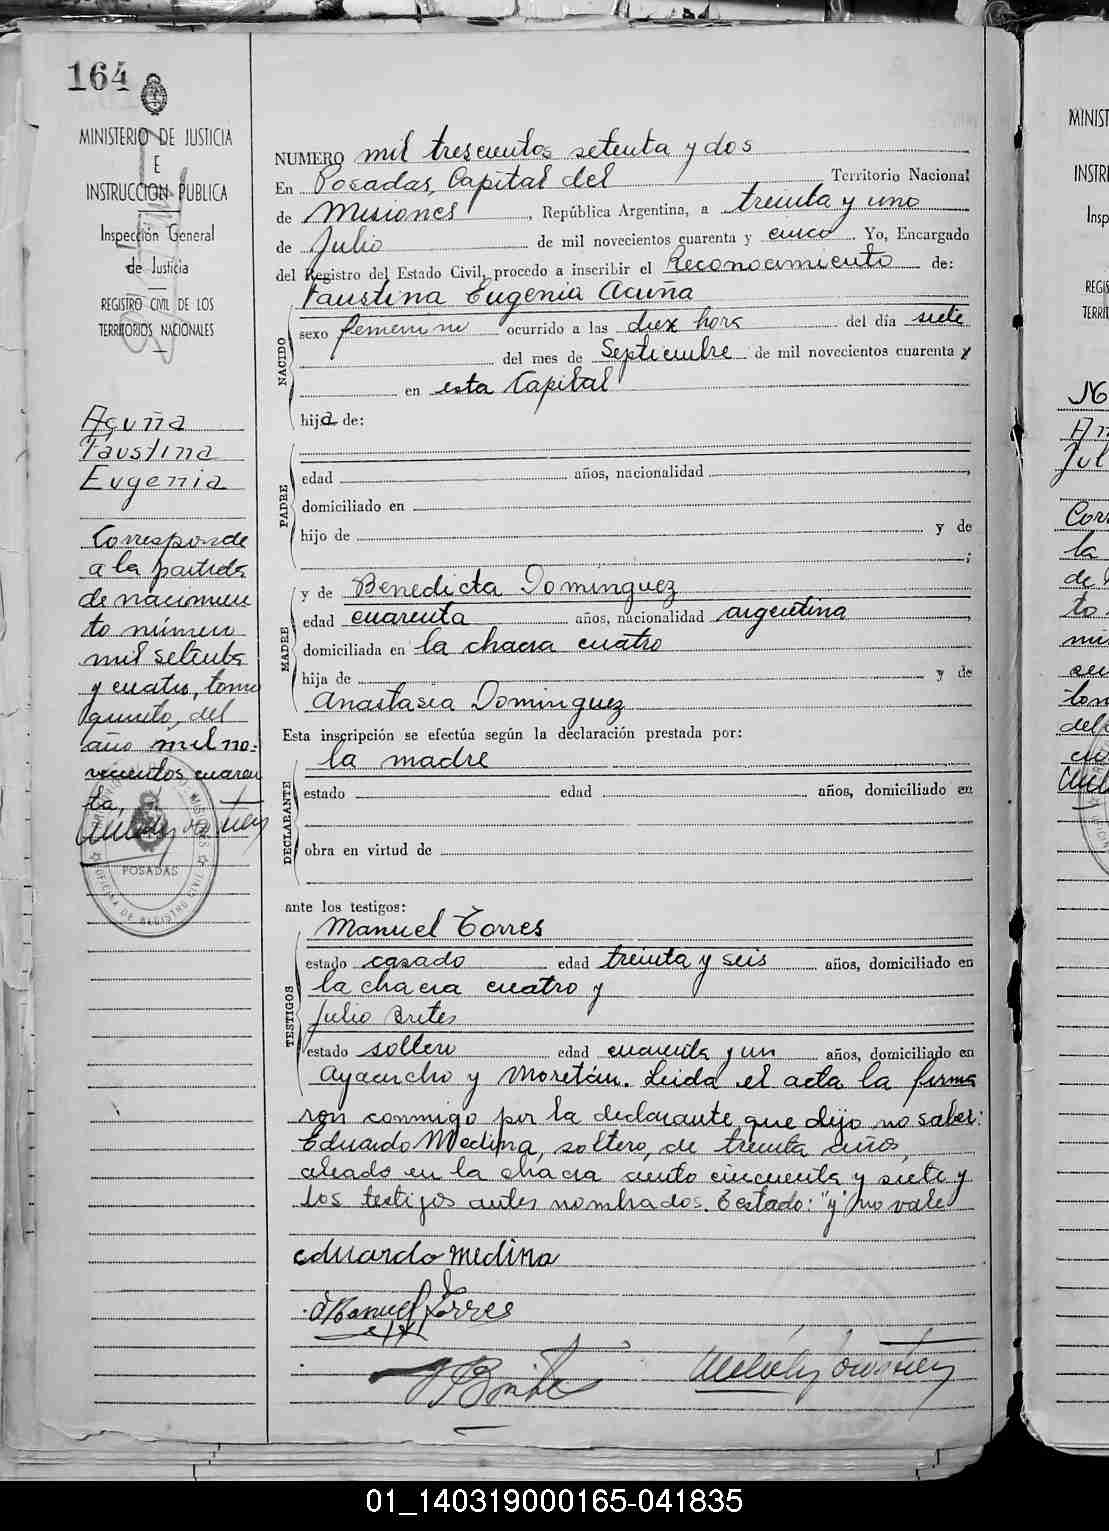 164
MINISTERIO DE JUSTICIA
E
INSTRUCCION PUBLICA
Inspección General
de Justicia
REGISTRO CIVIL DE LOS
TERRITORIOS NACIONALES
Acuña
Faustina
Eugenia
Corresponde
a la partida
de nacimien
to número
mil setenta
y cuatro, tomo
quinto, del
año mil no-
vecientos cuaren
ta,
POSADAS
OFICINA DE REGISTRO CIVIL
NUMERO mil trescientos setenta y dos
En Posadas, Capital del Territorio Nacional
de Misiones, República Argentina, a treinta y uno
de Julio de mil novecientos cuarenta y cinco Yo, Encargado
del Registro del Estado Civil, procedo a inscribir el Reconocimiento de:
Faustina Eugenia Acuña
NACIDO
sexo femenino ocurrido a las diez hora del día siete
del mes de Septiembre de mil novecientos cuarenta y
en esta Capital
hija de:
PADRE
edad años, nacionalidad ,
domiciliado en
hijo de y de
;
MADRE
y de Benedicta Dominguez
edad cuarenta años, nacionalidad argentina ,
domiciliada en la chacra cuatro
hija de y de
Anastasia Dominguez
Esta inscripción se efectúa según la declaración prestada por:
la madre
DECLARANTE
estado edad años, domiciliado en
obra en virtud de
ante los testigos:
TESTIGOS
Manuel Torres
estado casado edad treinta y seis años, domiciliado en
la chacra cuatro y
Julio Brites
estado soltero edad cuarenta y un años, domiciliado en
Ayacucho y Moretán. Leida el acta la firma
ron conmigo por la declarante que dijo no saber:
Eduardo Medina, soltero, de treinta años,
en la chacra ciento cincuenta y siete y
los testigos antes nombrados. Testado: "y" no vale
eduardo medina
Manuel Torres
J Brites
MINIST
INSTR
Insp
REGIS
TERRI
Jul
Corr
la
de
to
mi
01_140319000165-041835